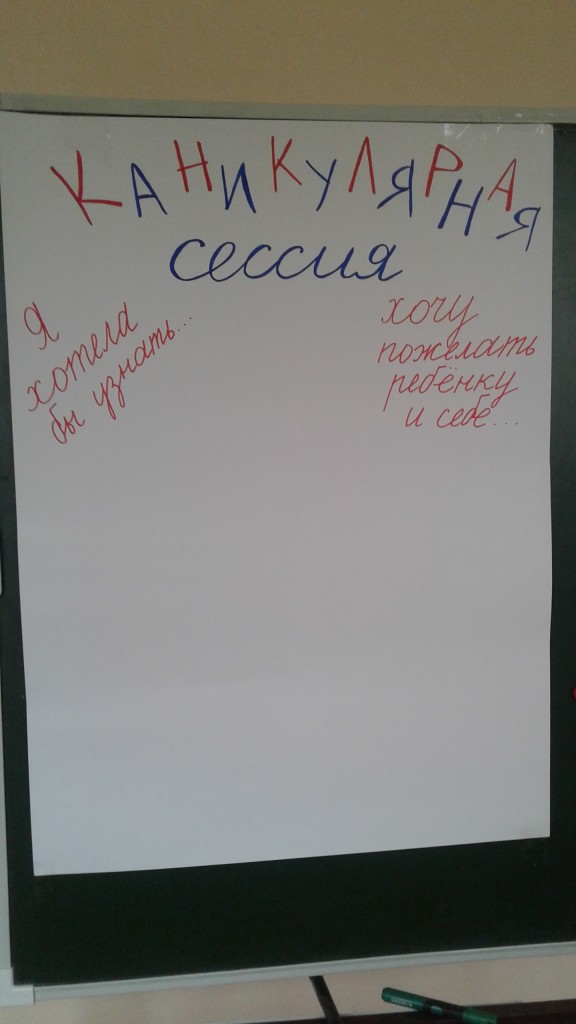 КАНИКУЛЯРНАЯ
сессия
Я
хотела
бы узнать...
хочу
пожелать
ребёнку
и себе...